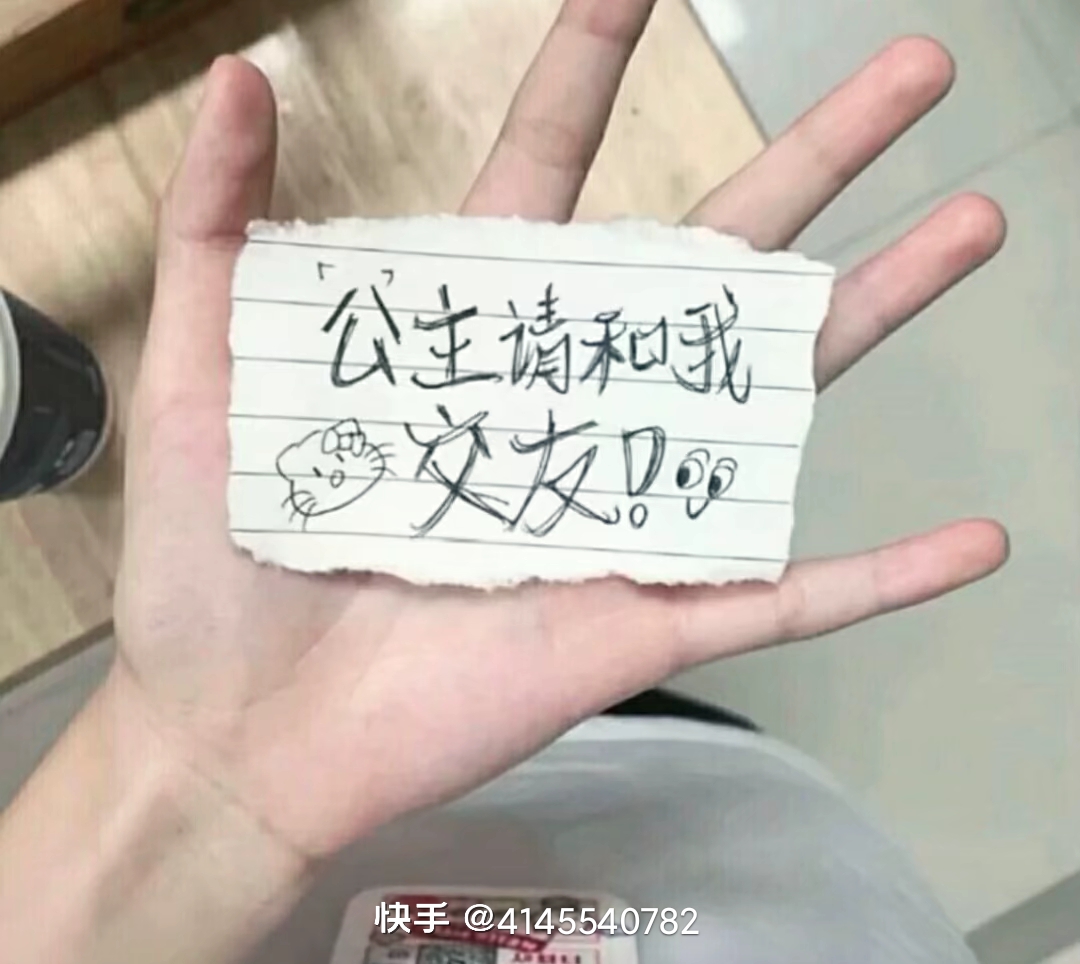 「公」主请和我
交友！
快手 @4145540782